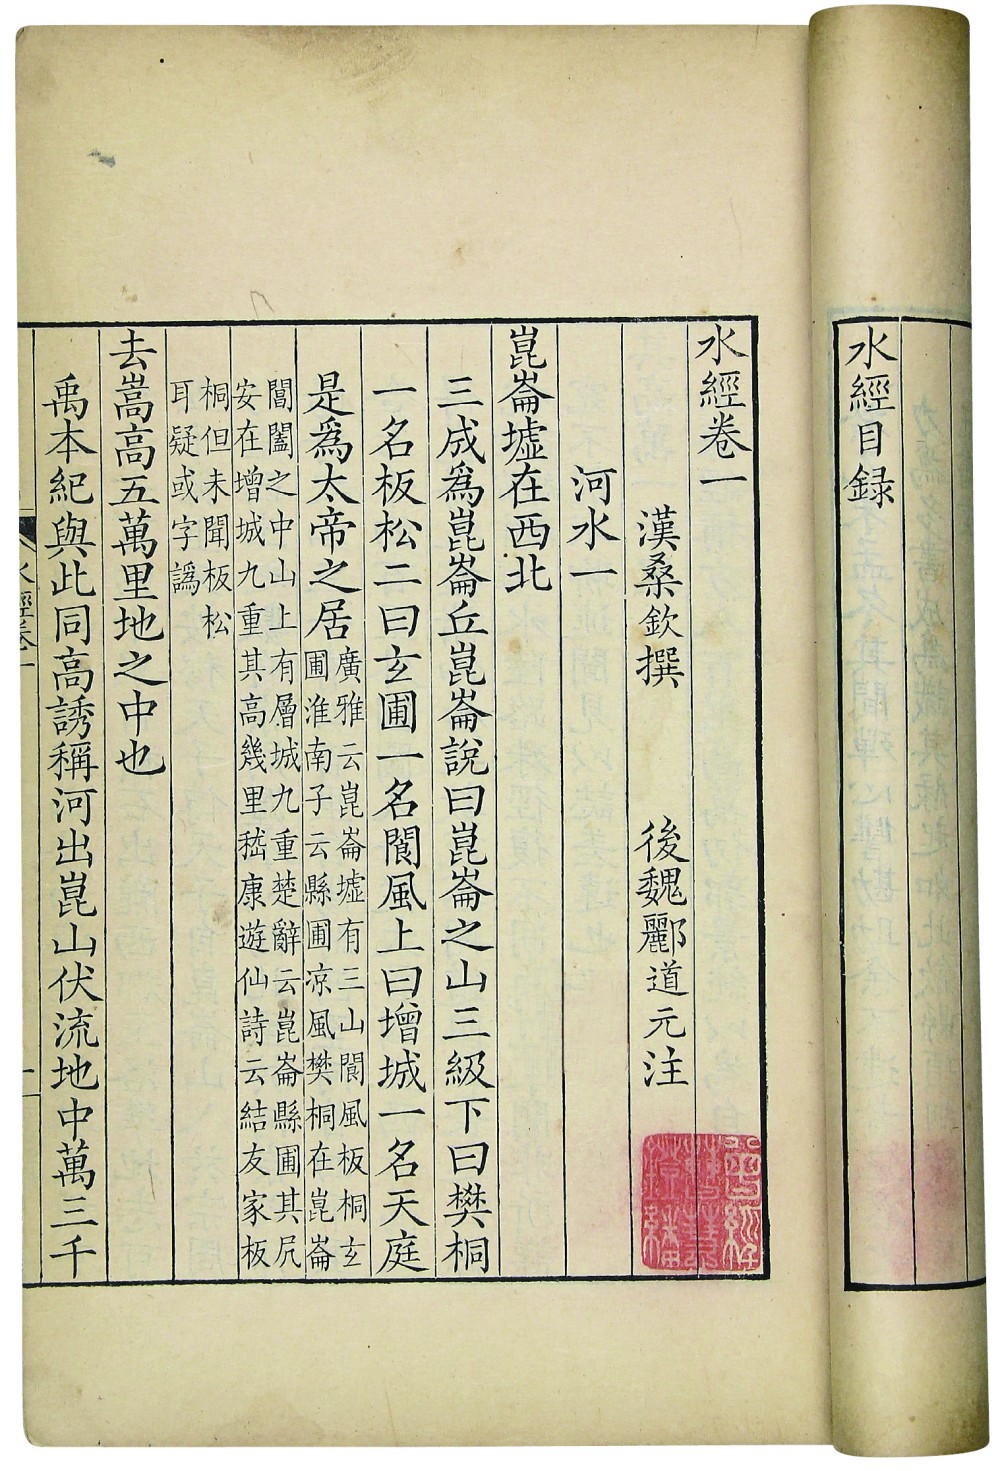 水經目錄
水經卷一
漢桑欽撰　後魏酈道元注
河水一
崑崙墟在西北
三成爲崑崙丘崑崙說曰崑崙之山三級下曰樊桐
一名板松二曰玄圃一名閬風上曰增城一名天庭
是爲太帝之居廣雅云崑崙墟有三山閬風板桐玄
圃淮南子云縣圃凉風樊桐在崑崙
閶闔之中山上有層城九重楚辭云崑崙縣圃其凥
安在增城九重其高幾里嵇康遊仙詩云結友家板
桐但未聞板松
耳疑或字譌
去嵩高五萬里地之中也
禹本紀與此同高誘稱河出崑山伏流地中萬三千
水經卷一